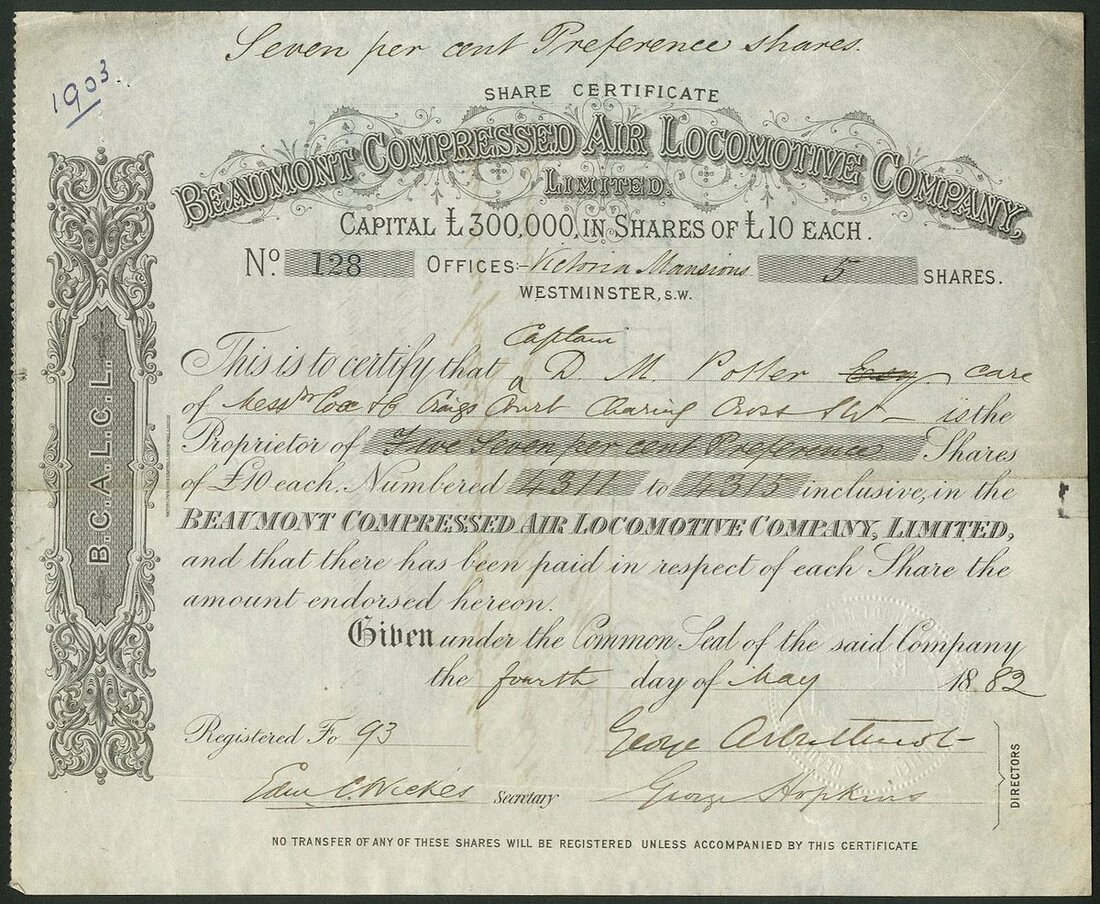 Seven per cent Preference shares.
1903
SHARE CERTIFICATE
BEAUMONT COMPRESSED AIR LOCOMOTIVE COMPANY,
LIMITED.
CAPITAL £300,000, IN SHARES OF £10 EACH.
No. 128 OFFICES:- Victoria Mansions 5 SHARES.
WESTMINSTER, S.W.
Captain
This is to certify that D. M. Potter Esq care
of Messrs Cox & Co Craigs Court Charing Cross SW is the
Proprietor of Five Seven per cent Preference Shares
of £10 each, Numbered 4311 to 4315 inclusive, in the
BEAUMONT COMPRESSED AIR LOCOMOTIVE COMPANY, LIMITED,
and that there has been paid in respect of each Share the
amount endorsed hereon.
Given under the Common Seal of the said Company
the fourth day of May 1882
Registered Fo 93
George Arbuthnot
Edw C. Wickes Secretary George Hopkins
DIRECTORS
NO TRANSFER OF ANY OF THESE SHARES WILL BE REGISTERED UNLESS ACCOMPANIED BY THIS CERTIFICATE
B.C.A.L.C.L.